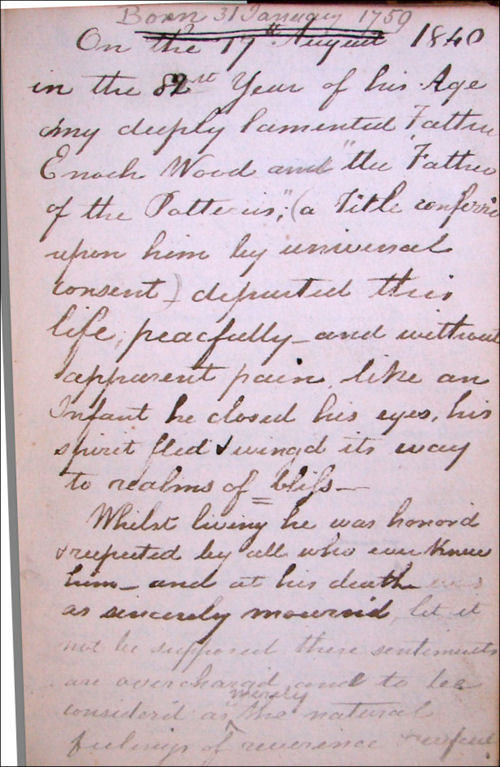 Born 31 January 1759
On the 17th August 1840
in the 82st Year of his Age
my deeply lamented Father
Enoch Wood and "the Father
of the Potteries," (a Title conferr
upon him by universal
consent) departed this
life, peacfully - and without
apparent pain, like an
Infant he closed his eyes, his
spirit fled & wingd its way
to realms of bliſs -
Whilst living he was honord
& respected by all who ever knew
him - and at his death was
as sincerely mournd, let it
not be supposed these sentiments
are overchargd and to be
considerd as merely the natural
feelings of reverence